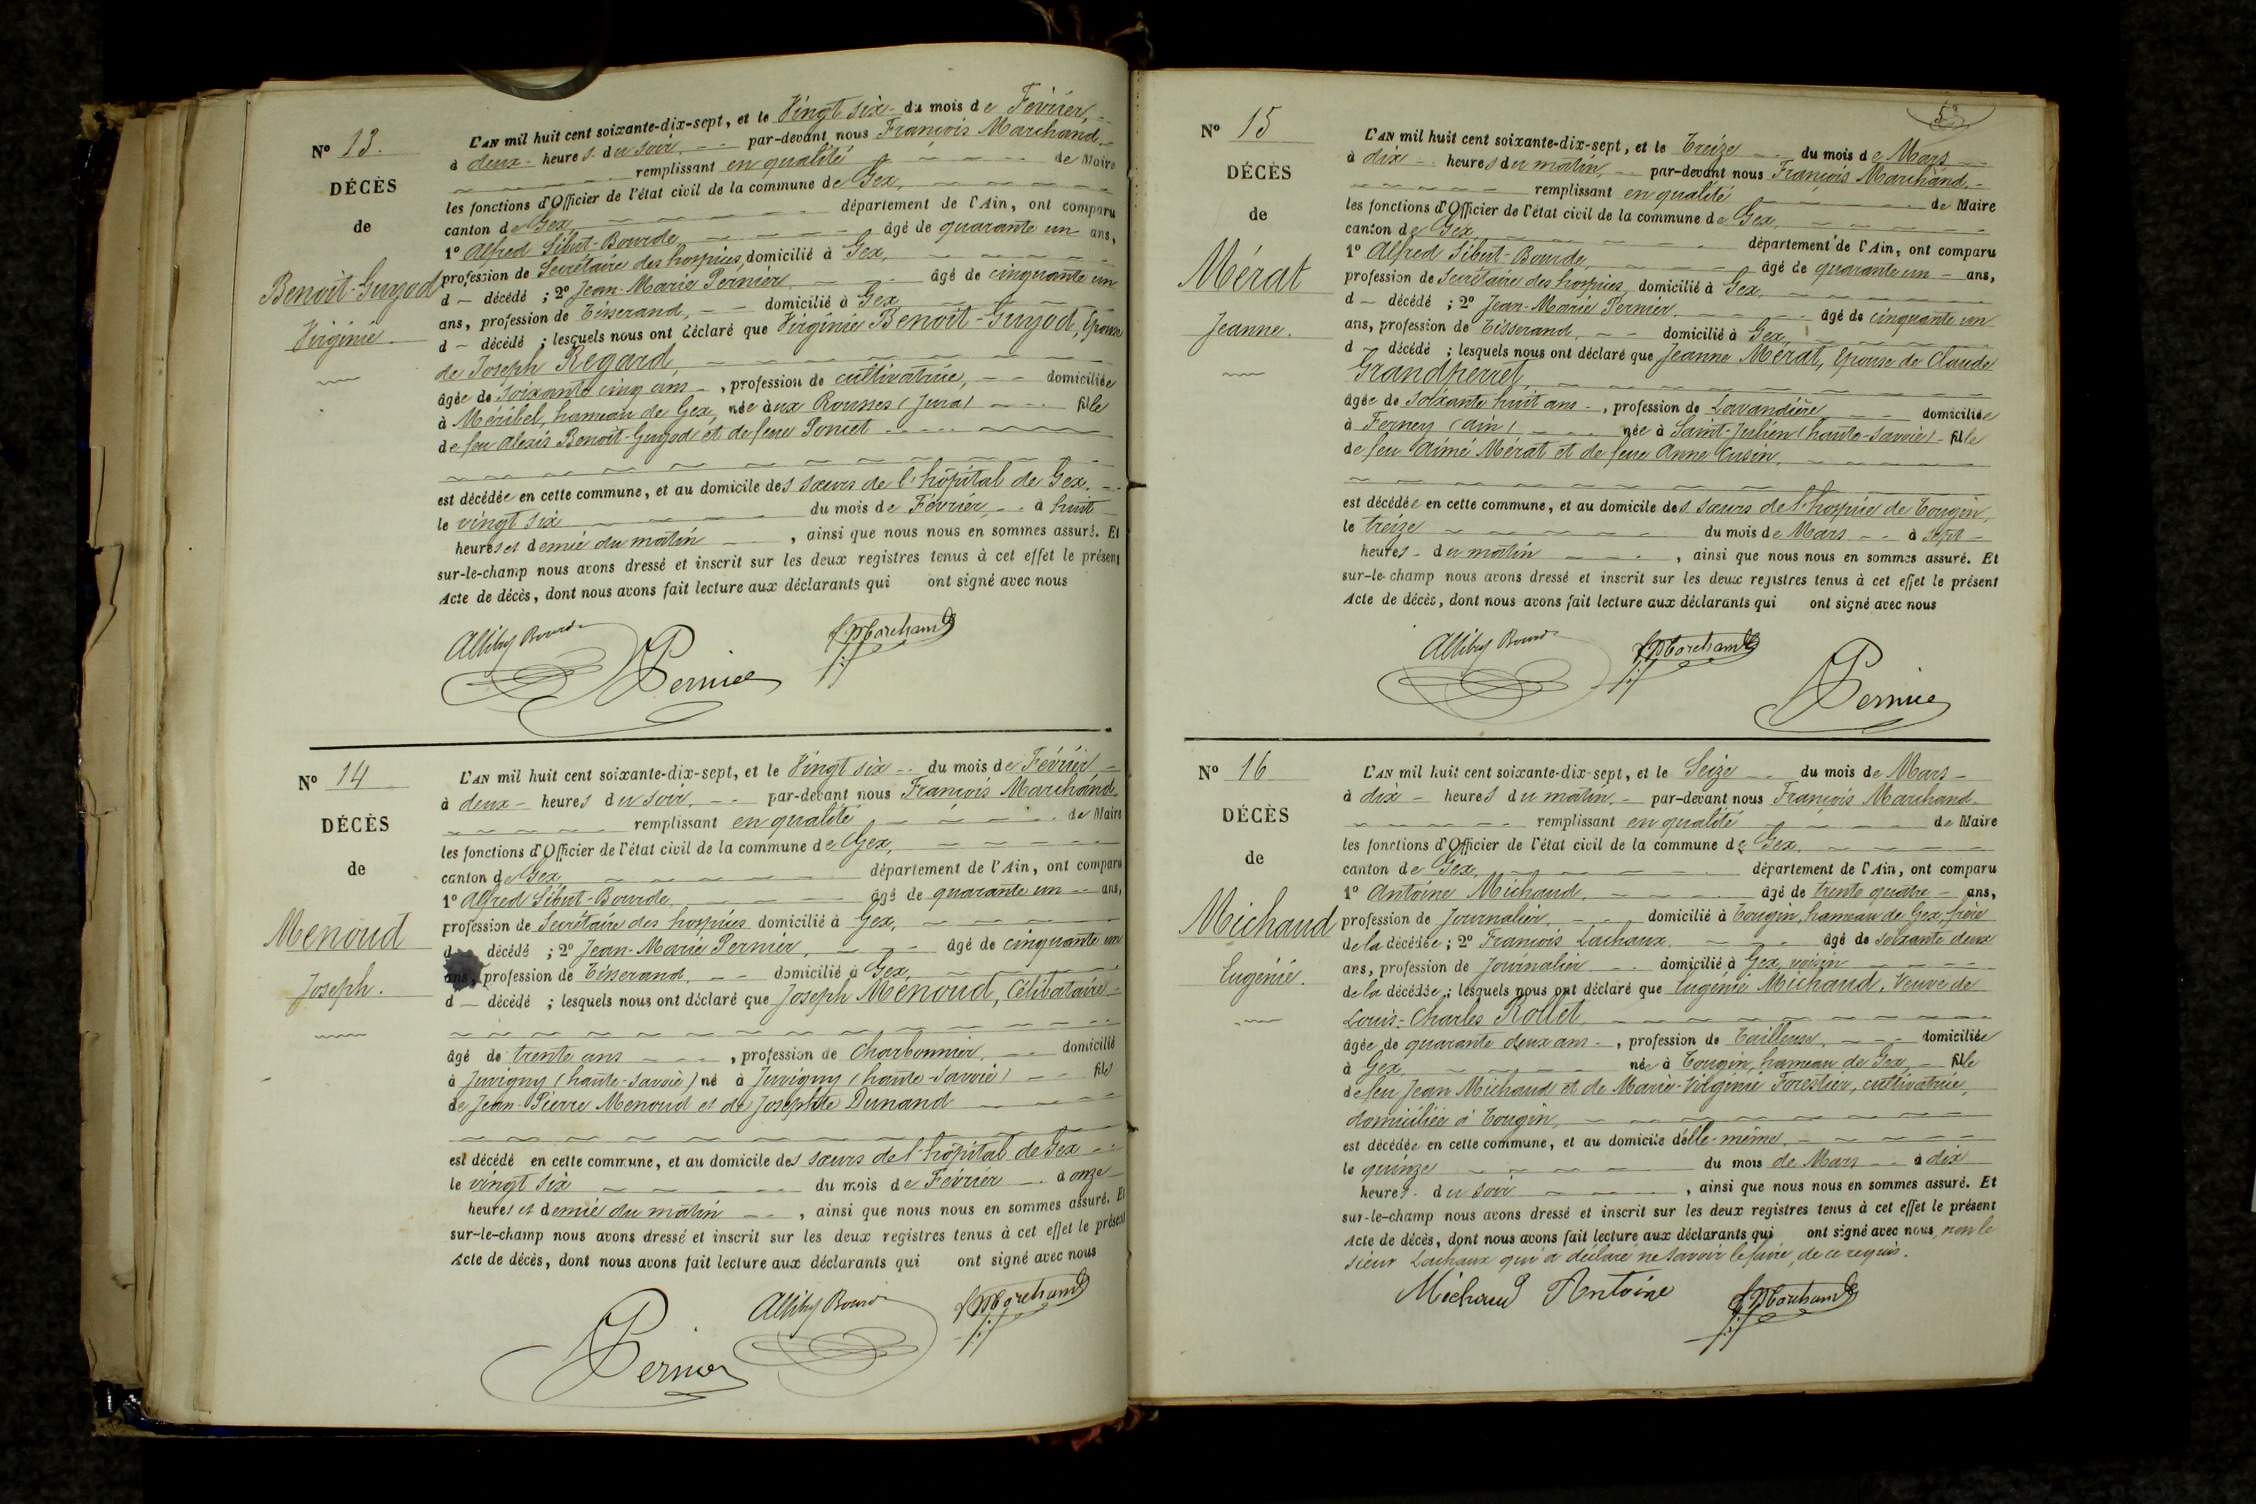 Nº 13.
DÉCÈS
de
Benoit-Guyod
Virginie.
L'AN mil huit cent soixante-dix-sept, et le Vingt six du mois de Février,
à deux heures du soir, par-devant nous François Marchand,
remplissant en qualité de Maire
les fonctions d'Officier de l'état civil de la commune de Gex,
canton de Gex, département de l'Ain, ont comparu
1º Alfred Sibut-Bourde âgé de quarante un ans,
profession de Secrétaire des hospices, domicilié à Gex,
d décédé ; 2º Jean-Marie Pernier, âgé de cinquante un
ans, profession de Tisserand, domicilié à Gex
d décédé ; lesquels nous ont déclaré que Virginie Benoit-Guyod, Epouse
de Joseph Regard,
âgée de soixante cinq ans, profession de cultivatrice, domiciliée
à Méribel, hameau de Gex, née aux Rousses (Jura) fille
de feu Alexis Benoit-Guyod et de feue Poncet
est décédée en cette commune, et au domicile des sœurs de l'hôpital de Gex.
le vingt six du mois de Février à huit
heures et demie du matin, ainsi que nous nous en sommes assuré. Et
sur-le-champ nous avons dressé et inscrit sur les deux registres tenus à cet effet le présent
Acte de décès, dont nous avons fait lecture aux déclarants qui ont signé avec nous
Pernier Marchand
Nº 14
DÉCÈS
de
Menoud
Joseph.
L'AN mil huit cent soixante-dix-sept, et le Vingt six du mois de Février
à deux heures du soir, par-devant nous François Marchand
remplissant en qualité de Maire
les fonctions d'Officier de l'état civil de la commune de Gex,
canton de Gex département de l'Ain, ont comparu
1º Alfred Sibut-Bourde âgé de quarante un ans,
profession de Secrétaire des hospices domicilié à Gex,
d décédé ; 2º Jean-Marie Pernier, âgé de cinquante un
ans, profession de Tisserand, domicilié à Gex,
d décédé ; lesquels nous ont déclaré que Joseph Menoud, Célibataire
âgé de trente ans, profession de Charbonnier, domicilié
à Juvigny (haute-savoie) né à Juvigny (haute-savoie) fils
de Jean-Pierre Menoud et de Josephte Dunand
est décédé en cette commune, et au domicile des sœurs de l'hôpital de Gex
le vingt six du mois de Février à onze
heures et demie du matin, ainsi que nous nous en sommes assuré. Et
sur-le-champ nous avons dressé et inscrit sur les deux registres tenus à cet effet le présent
Acte de décès, dont nous avons fait lecture aux déclarants qui ont signé avec nous
Pernier Marchand
53
Nº 15
DÉCÈS
de
Mérat
Jeanne.
L'AN mil huit cent soixante-dix-sept, et le Treize du mois de Mars
à dix heures du matin, par-devant nous François Marchand,
remplissant en qualité de Maire
les fonctions d'Officier de l'état civil de la commune de Gex,
canton de Gex, département de l'Ain, ont comparu
1º Alfred Sibut-Bourde, âgé de quarante un ans,
profession de Secrétaire des hospices, domicilié à Gex,
d décédé ; 2º Jean-Marie Pernier, âgé de cinquante un
ans, profession de Tisserand, domicilié à Gex,
d décédé ; lesquels nous ont déclaré que Jeanne Mérat, Epouse de Claude
Grandperret,
âgée de soixante huit ans, profession de Lavandière domiciliée
à Ferney (ain) née à Saint-Julien (haute-savoie) fille
de feu Aimé Mérat et de feue Anne Cusin,
est décédée en cette commune, et au domicile des sœurs de l'hospice de Tougin,
le treize du mois de Mars à sept
heures du matin, ainsi que nous nous en sommes assuré. Et
sur-le-champ nous avons dressé et inscrit sur les deux registres tenus à cet effet le présent
Acte de décès, dont nous avons fait lecture aux déclarants qui ont signé avec nous
Marchand Pernier
Nº 16
DÉCÈS
de
Michaud
Eugénie.
L'AN mil huit cent soixante-dix-sept, et le Seize du mois de Mars
à dix heures du matin, par-devant nous François Marchand
remplissant en qualité de Maire
les fonctions d'Officier de l'état civil de la commune de Gex.
canton de Gex, département de l'Ain, ont comparu
1º Antoine Michaud, âgé de trente quatre ans,
profession de Journalier, domicilié à Tougin, hameau de Gex, frère
de la décédée ; 2º François Lachaux, âgé de soixante deux
ans, profession de Journalier domicilié à Gex, voisin
de la décédée ; lesquels nous ont déclaré que Eugénie Michaud, Veuve de
Louis-Charles Rollet
âgée de quarante deux ans, profession de Tailleuse, domiciliée
à Gex née à Tougin, hameau de Gex fille
de feu Jean Michaud et de Marie-Virginie Forestier, cultivatrice,
domiciliée à Tougin,
est décédée en cette commune, et au domicile d'elle-même,
le quinze du mois de Mars à dix
heures du soir, ainsi que nous nous en sommes assuré. Et
sur-le-champ nous avons dressé et inscrit sur les deux registres tenus à cet effet le présent
Acte de décès, dont nous avons fait lecture aux déclarants qui ont signé avec nous, non le
sieur Lachaux qui a déclaré ne savoir le faire, de ce requis.
Michaud Antoine Marchand